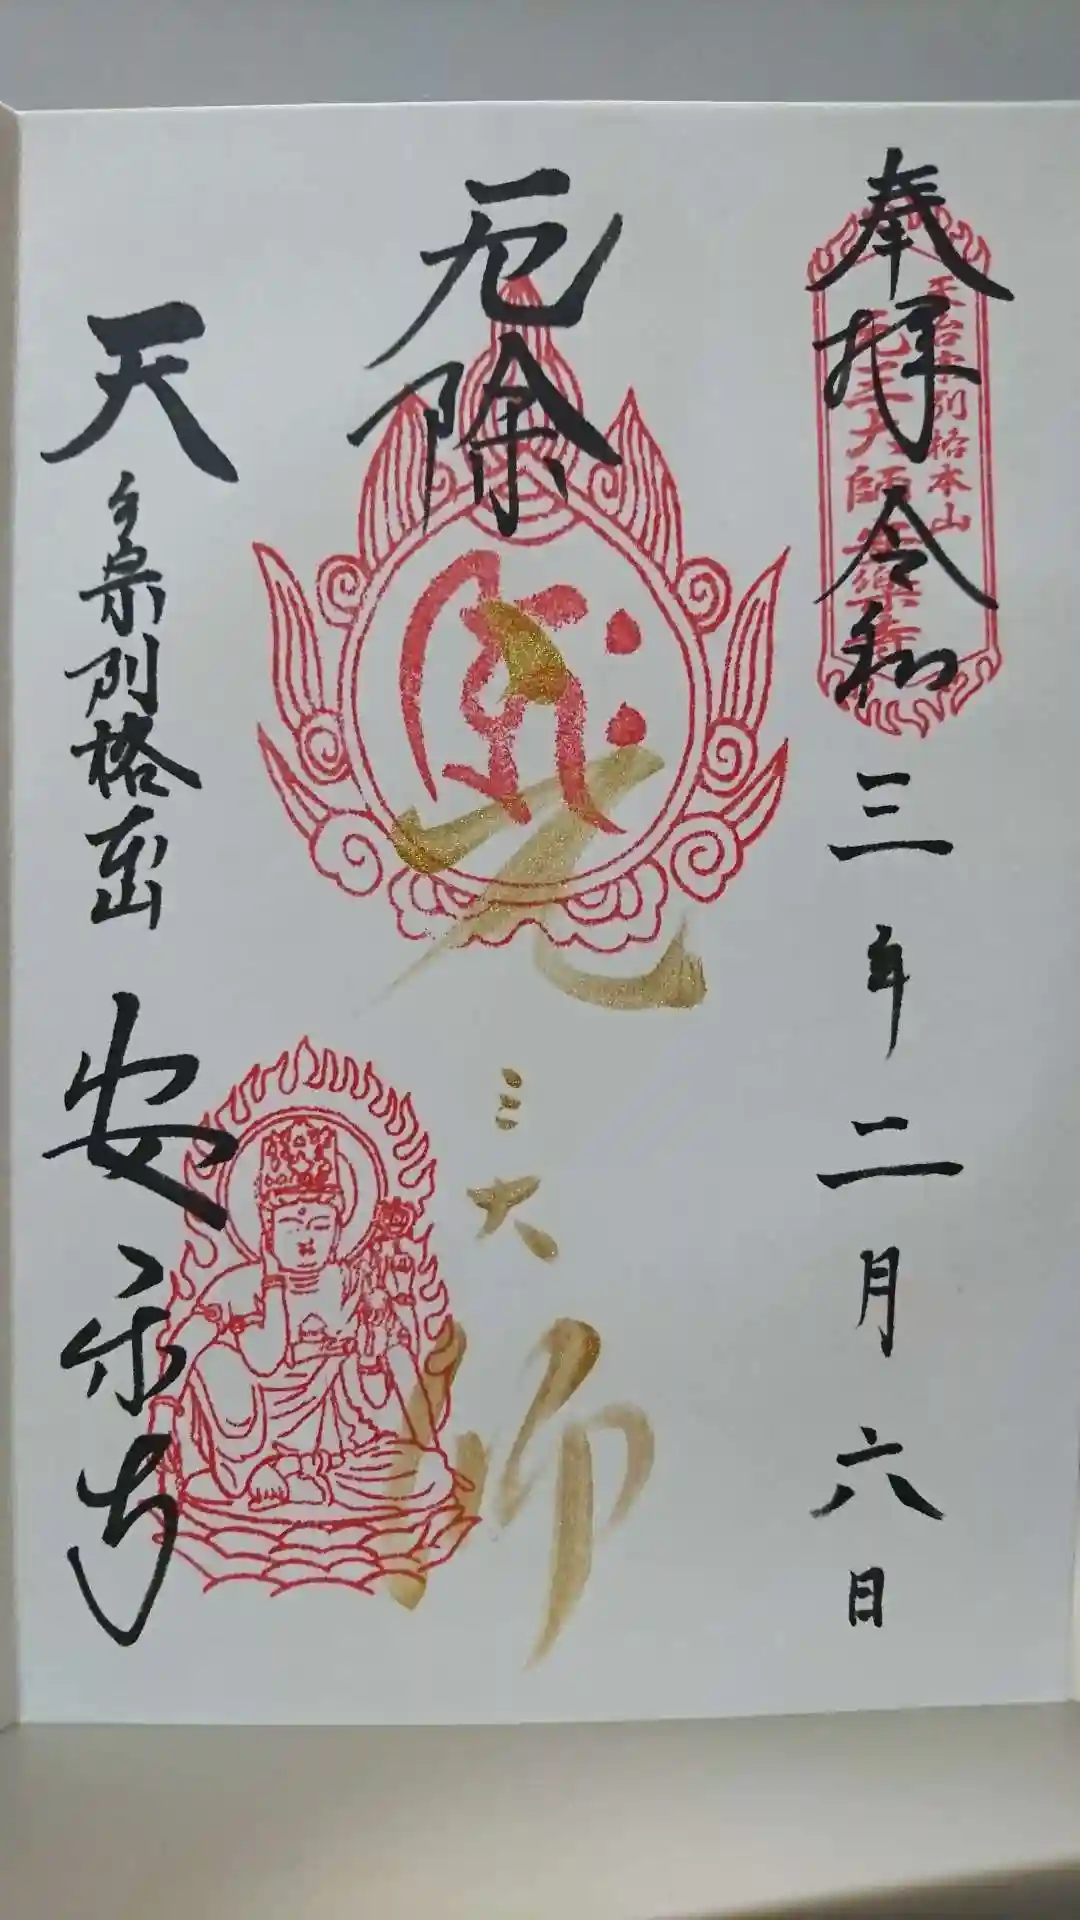 奉拝 令和三年二月六日
天台宗別格本山
元三大師安楽寺
厄除
元三大師
天台宗別格本山 安楽寺